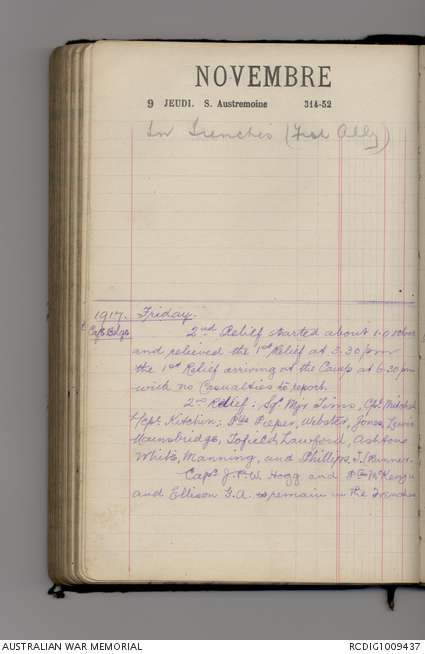 NOVEMBRE
9 JEUDI. S. Austremoine 314-52
In Trenches
1917. Friday.
2nd Relief started about 1.0
and relieved the 1st Relief at 3.30 pm
the 1st Relief arriving at the Camp at 6.30 pm
with no Casualties to report.
2nd Relief: Sgt Mjr Tims, Cpl
L/Cpl Kitchin; Ptes Pieper, Webster, Jones, Lewis
Mainsbridge, Tofield, Lawford, Ashton
White, Manning, and Phillips,
Capt J.P.W. Hogg and Pte McKenzie
and Ellison G.A. to remain in the Trenches
AUSTRALIAN WAR MEMORIAL RCDIG1009437